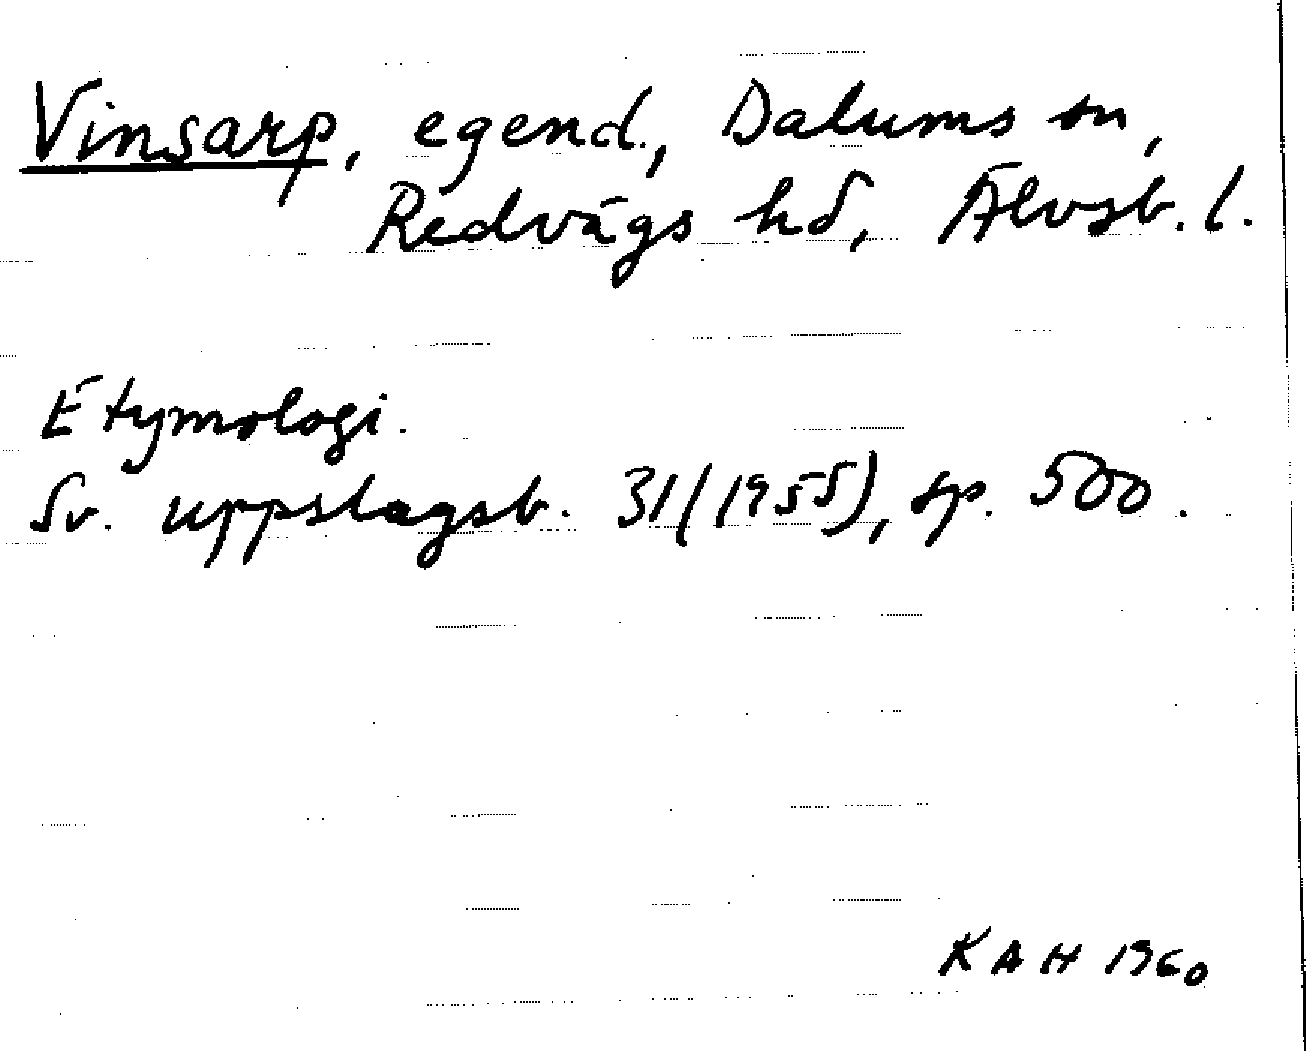 Vinsarp, egend., Dalums sn,
Redvägs hd, Älvsb. l.
Etymologi.
Sv. uppslagsb. 31 (1955), sp. 500.
KAH 1960